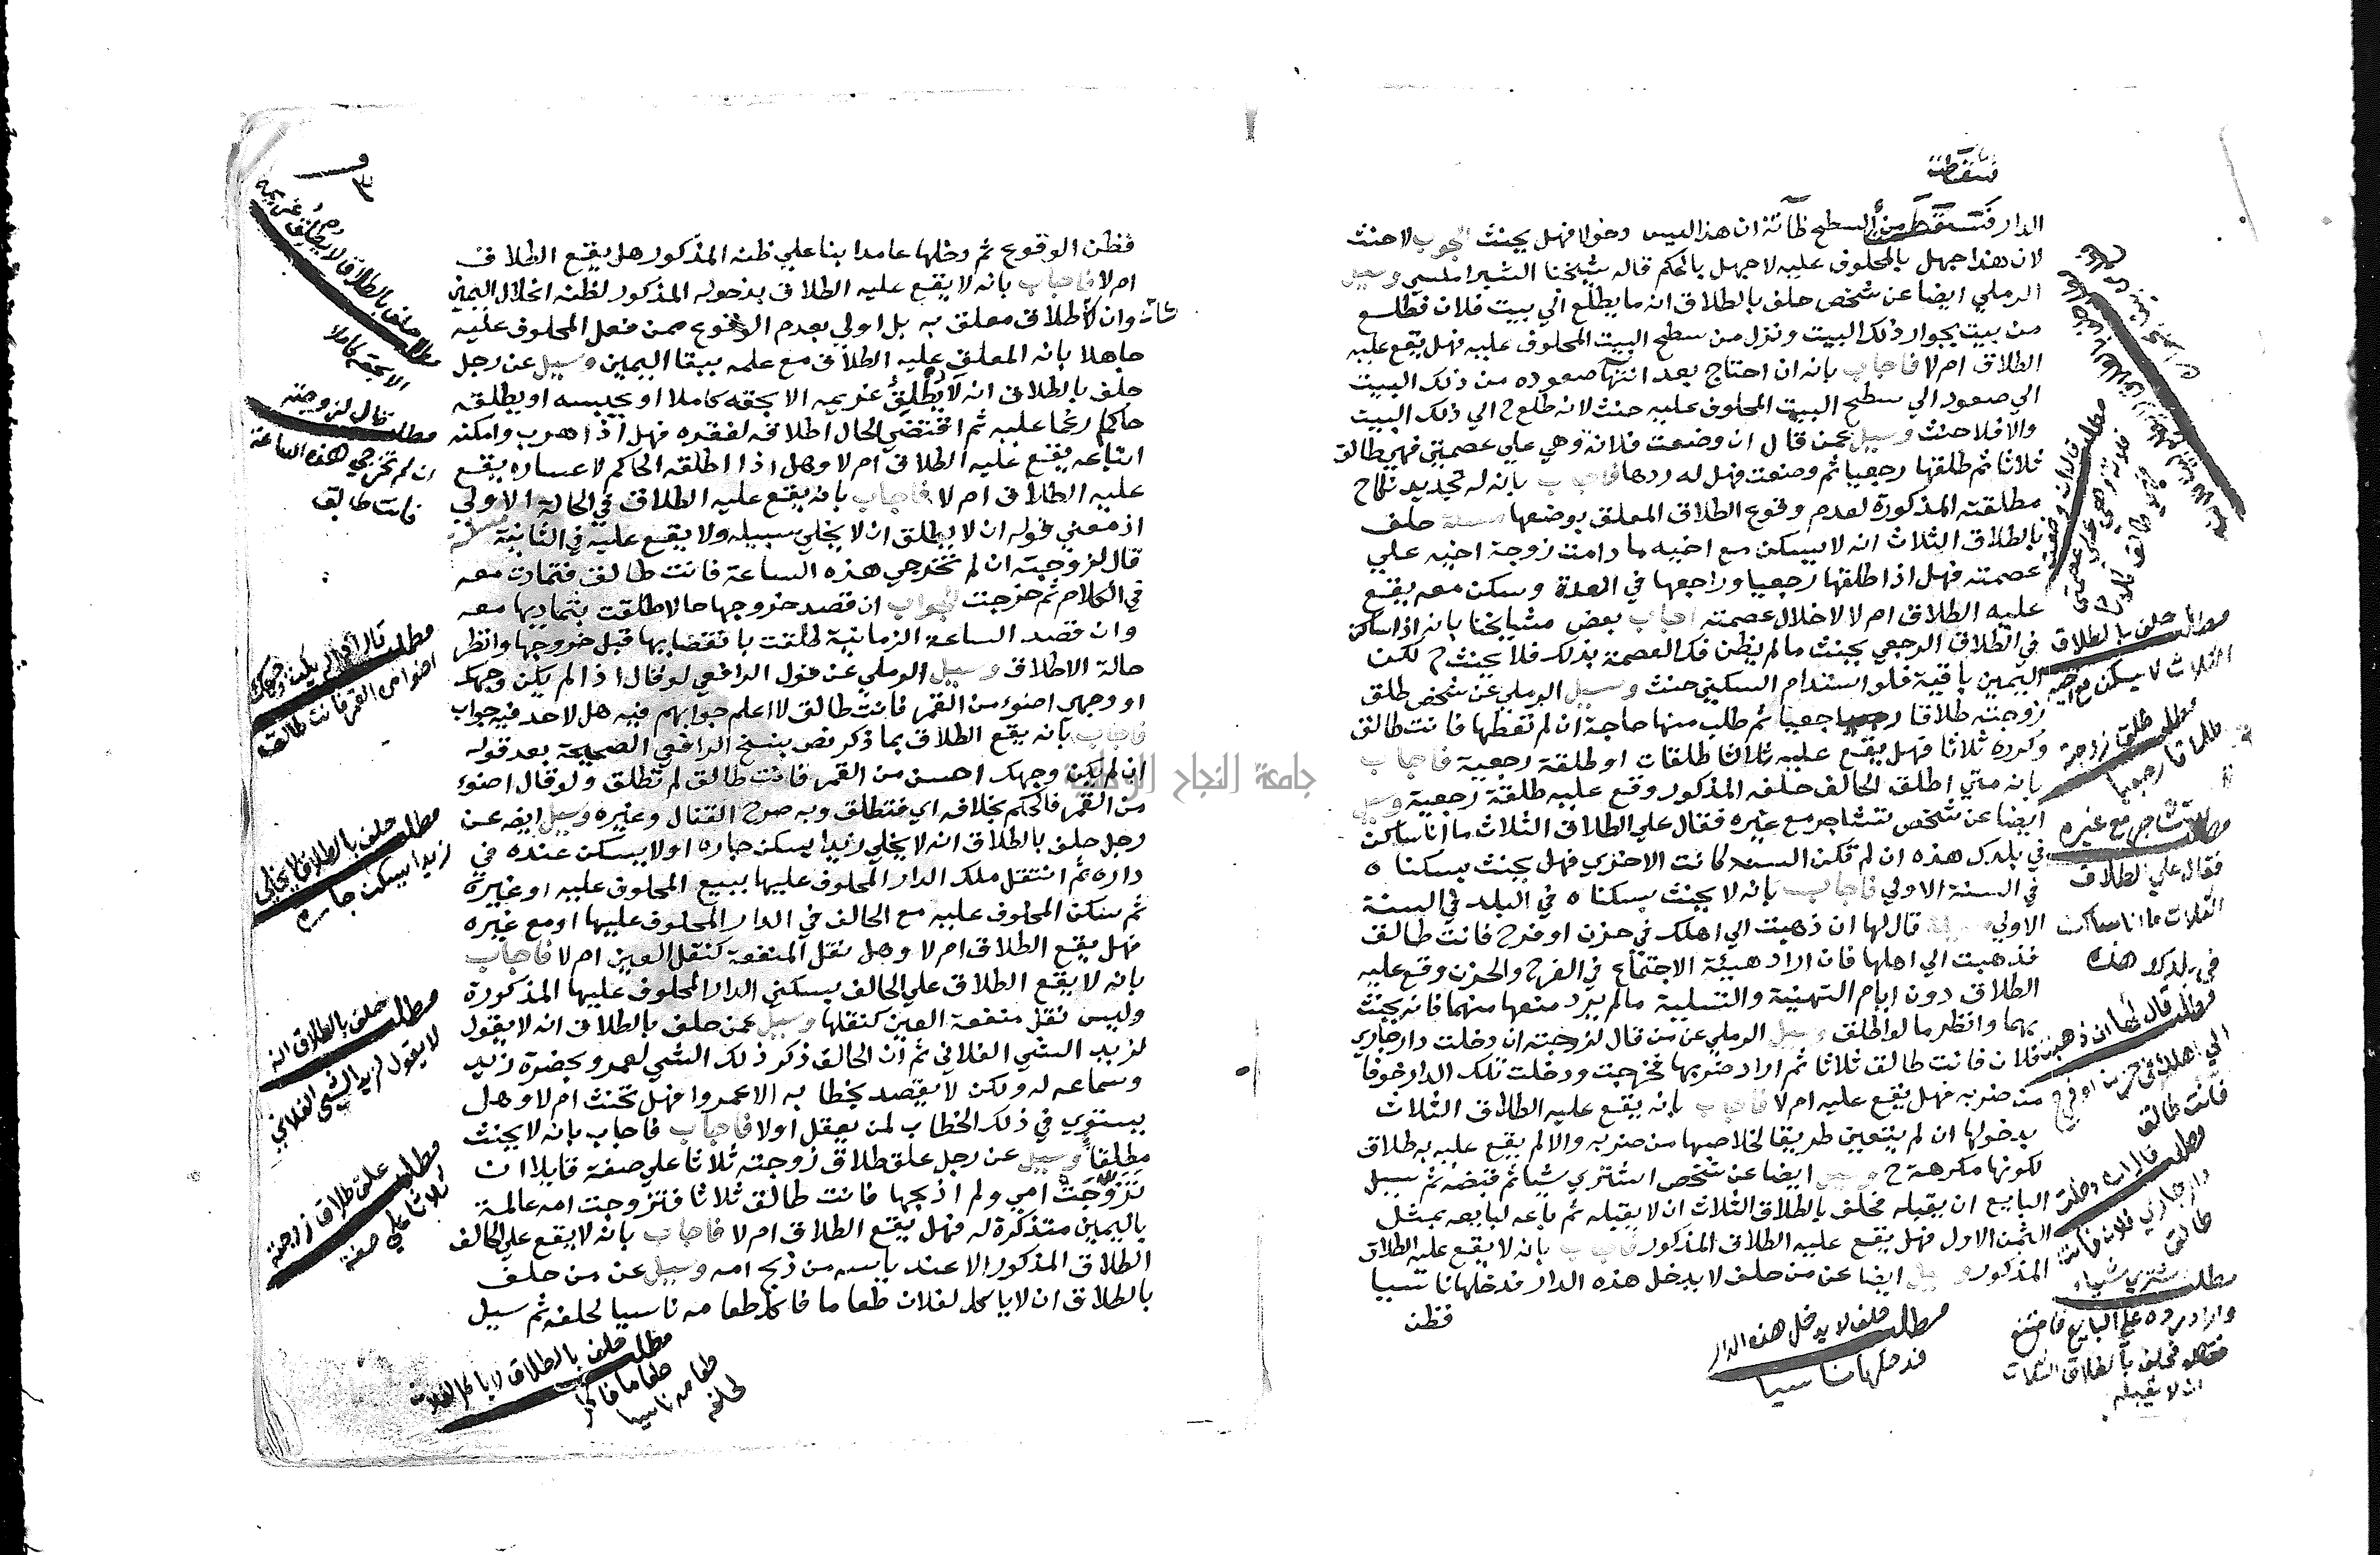 الدار فسقط من السطح ظانة ان هذا ليس دخولا فهل يحنث الجواب لا حنث
لان هذا جهل بالمحلوف عليه لا جهل بالحكم قاله شيخنا الشبراملسي وسيل
الرملي ايضا عن شخص حلف بالطلاق انه ما يطلع الي بيت فلان فطلع
من بيت بجوار ذلك البيت ونزل من سطح البيت المحلوف عليه فهل يقع عليه
الطلاق ام لا فاجاب بانه ان احتاج بعد انتها صعوده من ذلك البيت
الي صعود الي سطح البيت المحلوف عليه حنث لانه طلع ح الي ذلك البيت
والا فلا حنث وسيل عمن قال ان وضعت فلانة وهي علي عصمتي فهي طالق
ثلاثا ثم طلقها رجعيا ثم وضعت فهل له ردها فاجاب بانه له تجديد نكاح
مطلقته المذكورة لعدم وقوع الطلاق المعلق بوضعها مسئلة حلف
بالطلاق الثلاث انه لا يسكن مع اخيه ما دامت زوجة اخيه علي
عصمته فهل اذا طلقها رجعيا وراجعها في العدة وسكن معه يقع
عليه الطلاق ام لا لاخلال عصمته اجاب بعض مشايخنا بانه اذا سكن
في الطلاق الرجعي يحنث ما لم يظن فك العصمة بذلك فلا يحنث ح لكن
اليمين باقية فلو استدام السكني حنث وسيل الرملي عن شخص طلق
زوجته طلاقا رجعيا ثم طلب منها حاجة ان لم تعطها فانت طالق
وكرره ثلاثا فهل يقع عليه ثلاثا طلقات او طلقة رجعية فاجاب
بانه متي اطلق الحالف حلفه المذكور وقع عليه طلقة رجعية وسيل
ايضا عن شخص تشاجر مع غيره فقال علي الطلاق الثلاث ما انا ساكن
في بلدك هذه ان لم تكن السنه كانت الاخري فهل يحنث بسكناه
في السنة الاولي فاجاب بانه لا يحنث بسكناه في البلد في السنة
الاولي مسئلة قال لها ان ذهبت الي اهلك في حزن او فرح فانت طالق
فذهبت الي اهلها فان اراد هيئة الاجتماع في الفرح والحزن وقع عليه
الطلاق دون ايام التهنية والتسلية مالم يرد منعها منهما فانه يحنث
بهما وانظر ما لو اطلق وسيل الرملي عن من قال لزوجته ان دخلت دار جاري
فلان فانت طالق ثلاثا ثم اراد ضربها فخرجت ودخلت تلك الدار خوفا
من ضربه فهل يقع عليه ام لا فاجاب بانه يقع عليه الطلاق الثلاث
بدخولها ان لم يتعين طريقا لخلاصها من ضربه والا لم يقع عليه به طلاق
لكونها مكرهة ح وسيل ايضا عن شخص اشتري شيا ثم قبضه ثم سيل
البايع ان يقيله فحلف بالطلاق الثلاث ان لا يقيله ثم باعه لبايعه بمثل
الثمن الاول فهل يقع عليه الطلاق المذكور فاجاب بانه لا يقع عليه الطلاق
المذكور وسيل ايضا عن من حلف لا يدخل هذه الدار فدخلها ناسيا
فظن
مطلب قال ان وضعت
فلانة وهي علي عصمتي
فهي طالق ثلاثا
مطلب حلف بالطلاق
الثلاث لا يسكن مع اخيه
مطلب طلق زوجة
طلاقا رجعيا
مطلب تشاجر مع غيره
فقال علي الطلاق
الثلاث ما انا ساكن
في بلدك هذه
مطلب قال لها ان ذهبت
الي اهلك في حزن او فرح
فانت طالق
مطلب قال ان دخلت
دار جاري فلان فانت
طالق
مطلب اشتري شياء
واراد رده علي البايع فامتنع
فحلف بالطلاق الثلاث
ان لا يقيله
مطلب حلف لا يدخل هذه الدار
فدخلها ناسيا
فظن الوقوع ثم دخلها عامدا بنا علي ظنه المذكور هل يقع الطلاق
ام لا فاجاب بانه لا يقع عليه الطلاق بدخوله المذكور لظنه انحلال اليمين
وان لا طلاق معلق به بل اولي بعدم الوقوع ممن فعل المحلوف عليه
جاهلا بانه المعلق عليه الطلاق مع علمه ببقا اليمين وسيل عن رجل
حلف بالطلاق انه لا يطلق غريمه الا بحقه كاملا او يحبسه او يطلقه
حاكم رغما عليه ثم اقتضي الحال اطلاقه لفقره فهل اذا هرب وامكنه
اتباعه يقع عليه الطلاق ام لا وهل اذا اطلقه الحاكم لاعساره يقع
عليه الطلاق ام لا فاجاب بانه يقع عليه الطلاق في الحالة الاولي
اذ معني قوله ان لا يطلق ان لا يخلي سبيله ولا يقع عليه في الثانية مسئلة
قال لزوجته ان لم تخرجي هذه الساعة فانت طالق فتمادت معه
في الكلام ثم خرجت الجواب ان قصد خروجها حالا طلقت بتماديها معه
وان قصد الساعة الزمانية طلقت بانقضايها قبل خروجها وانظر
حالة الاطلاق وسيل الرملي عن قول الرافعي لو قال اذا لم يكن وجهك
او وجهي اضوء من القمر فانت طالق لا اعلم جوابهم فيه هل لاحد فيه جواب
فاجاب بانه يقع الطلاق بما ذكر نص بنسخ الرافعي الصحيحة بعد قوله
ان لم يكن وجهك احسن من القمر فانت طالق لم تطلق ولو قال اضوء
من القمر فالحكم بخلافه اي فتطلق وبه صرح القفال وغيره وسيل ايضه عن
رجل حلف بالطلاق انه لا يخلي زيدا يسكن جاره او لا يسكن عنده في
داره ثم انتقل ملك الدار المحلوف عليها ببيع المحلوف عليه او غيره
ثم سكن المحلوف عليه مع الحالف في الدار المحلوف عليها او مع غيره
فهل يقع الطلاق ام لا وهل نقل المنفعة كنقل العين ام لا فاجاب
بانه لا يقع الطلاق علي الحالف بسكني الدار المحلوف عليها المذكورة
وليس نقل منفعة العين كنقلها وسيل عمن حلف بالطلاق انه لا يقول
لزيد الشي الفلاني ثم ان الحالف ذكر ذلك الشي لعمرو بحضرة زيد
وسماعه له ولكن لا يقصد بخطابه الا عمروا فهل تحنث ام لا وهل
يستوي في ذلك الخطاب لمن يعقل اولا فاجاب فاجاب بانه لا يحنث
مطلقا وسيل عن رجل علق طلاق زوجته ثلاثا علي صفة قايلا ان
تزوجت امي ولم اذبحها فانت طالق ثلاثا فتزوجت امه عالمة
باليمين متذكرة له فهل يقع الطلاق ام لا فاجاب بانه لا يقع علي الحالف
الطلاق المذكور الا عند ياسه من ذبح امه وسيل عن من حلف
بالطلاق ان لا ياكل لفلان طعاما فاكل طعامه ناسيا لحلفه ثم سيل
مطلب حلف بالطلاق لا يطلق غريمه
الا بحقه كاملا
مطلب قال لزوجته
ان لم تخرجي هذه الساعة
فانت طالق
مطلب قال ان لم يكن وجهك
اضوا من القمر فانت طالق
مطلب حلف بالطلاق لا يخلي
زيدا يسكن جاره
مطلب حلف بالطلاق انه
لا يقول لزيد الشي الفلاني
مطلب علق طلاق زوجته
ثلاثا علي صفة
مطلب حلف بالطلاق لا ياكل لفلان
طعاما فاكل
طعامه ناسيا
لحلفه
جامعة النجاح الوطنية